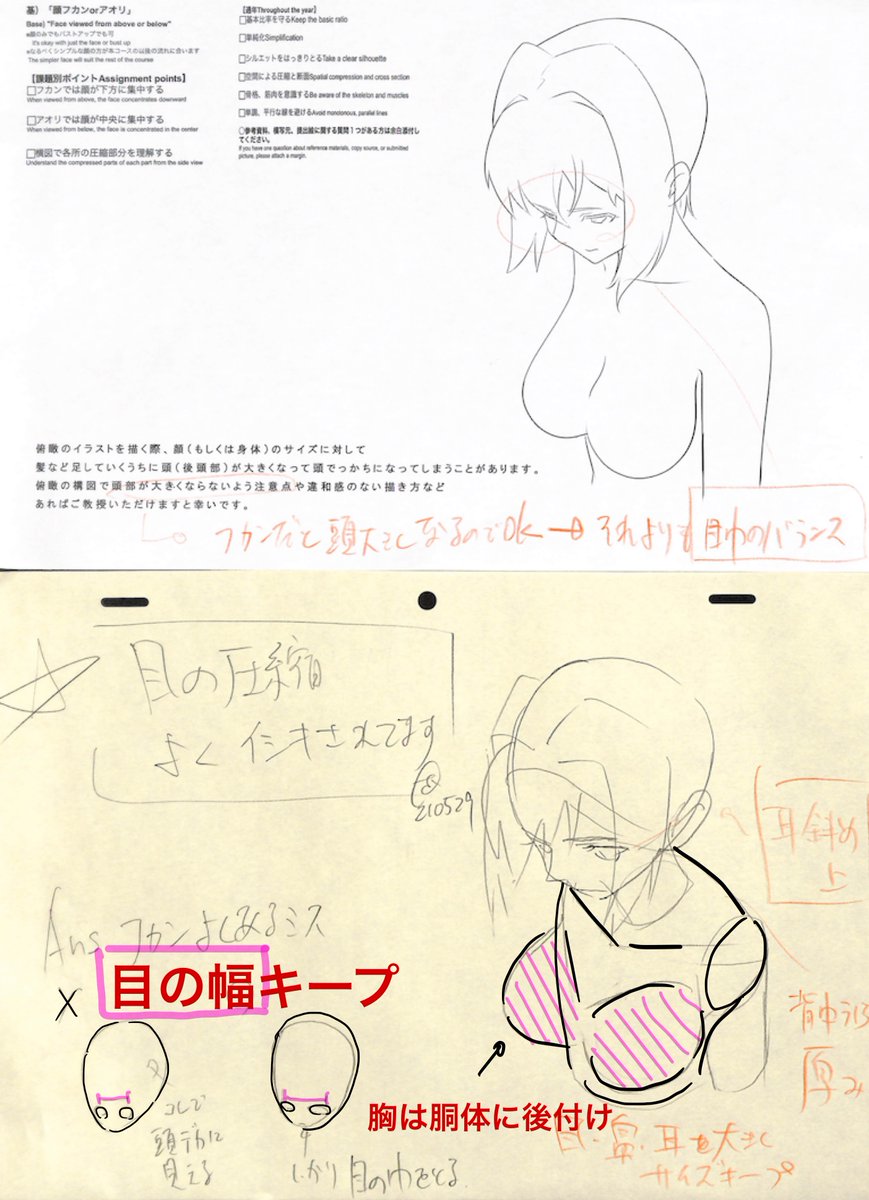 基）「顔フカンorアオリ」
Base) "Face viewed from above or below"
※顔のみでもバストアップでも可
It's okay with just the face or bust up
※なるべくシンプルな顔の方が本コースの以後の流れに合います
The simpler face will suit the rest of the course
【課題別ポイントAssignment points】
□フカンでは顔が下方に集中する
When viewed from above, the face concentrates downward
□アオリでは顔が中央に集中する
When viewed from below, the face is concentrated in the center
□横図で各所の圧縮部分を理解する
Understand the compressed parts of each part from the side view
【通年Throughout the year】
□基本比率を守るKeep the basic ratio
□単純化Simplification
□シルエットをはっきりとるTake a clear silhouette
□空間による圧縮と断面Spatial compression and cross section
□骨格、筋肉を意識するBe aware of the skeleton and muscles
□単調、平行な線を避けるAvoid monotonous, parallel lines
○参考資料、模写元、提出絵に関する質問１つがある方は余白添付し
てください。
If you have one question about reference materials, copy source, or submitted
picture, please attach a margin.
俯瞰のイラストを描く際、顔（もしくは身体）のサイズに対して
髪など足していくうちに頭（後頭部）が大きくなって頭でっかちになってしまうことがあります。
俯瞰の構図で頭部が大きくならないよう注意点や違和感のない描き方など
あればご教授いただけますと幸いです。
フカンだと頭大きくなるのでOK→それよりも目巾のバランス
目の圧縮
よくイシキされてます
210529
耳斜め
上
Ans フカンよくあるミス
×
目の幅キープ
背中うしろ
厚み
コレで
頭デカに
見える
しっかり目の巾をとる
胸は胴体に後付け
目・鼻・耳を大きく
サイズキープ